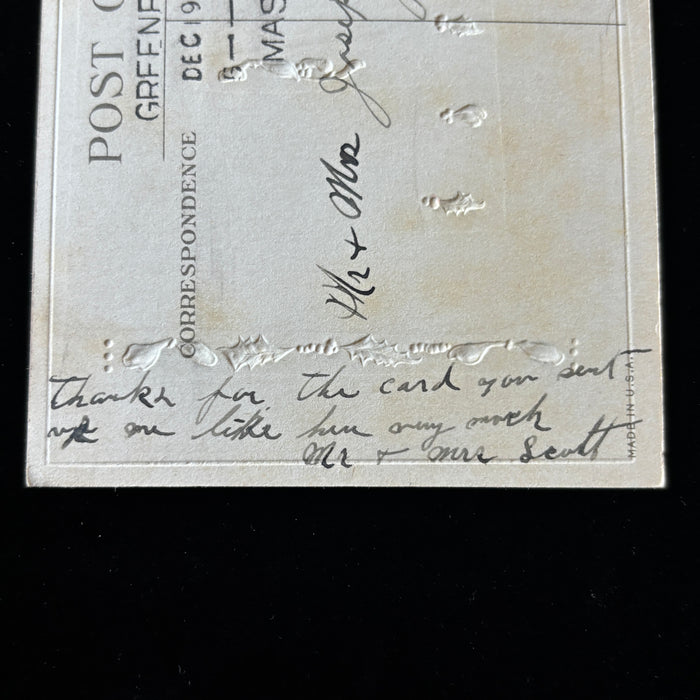 POST C
GREENF
DEC 19
MAS
CORRESPONDENCE
Mr + Mrs Josep
thanks for the card you sent
me like him very much
Mr + Mrs Scott
MADE IN U.S.A.